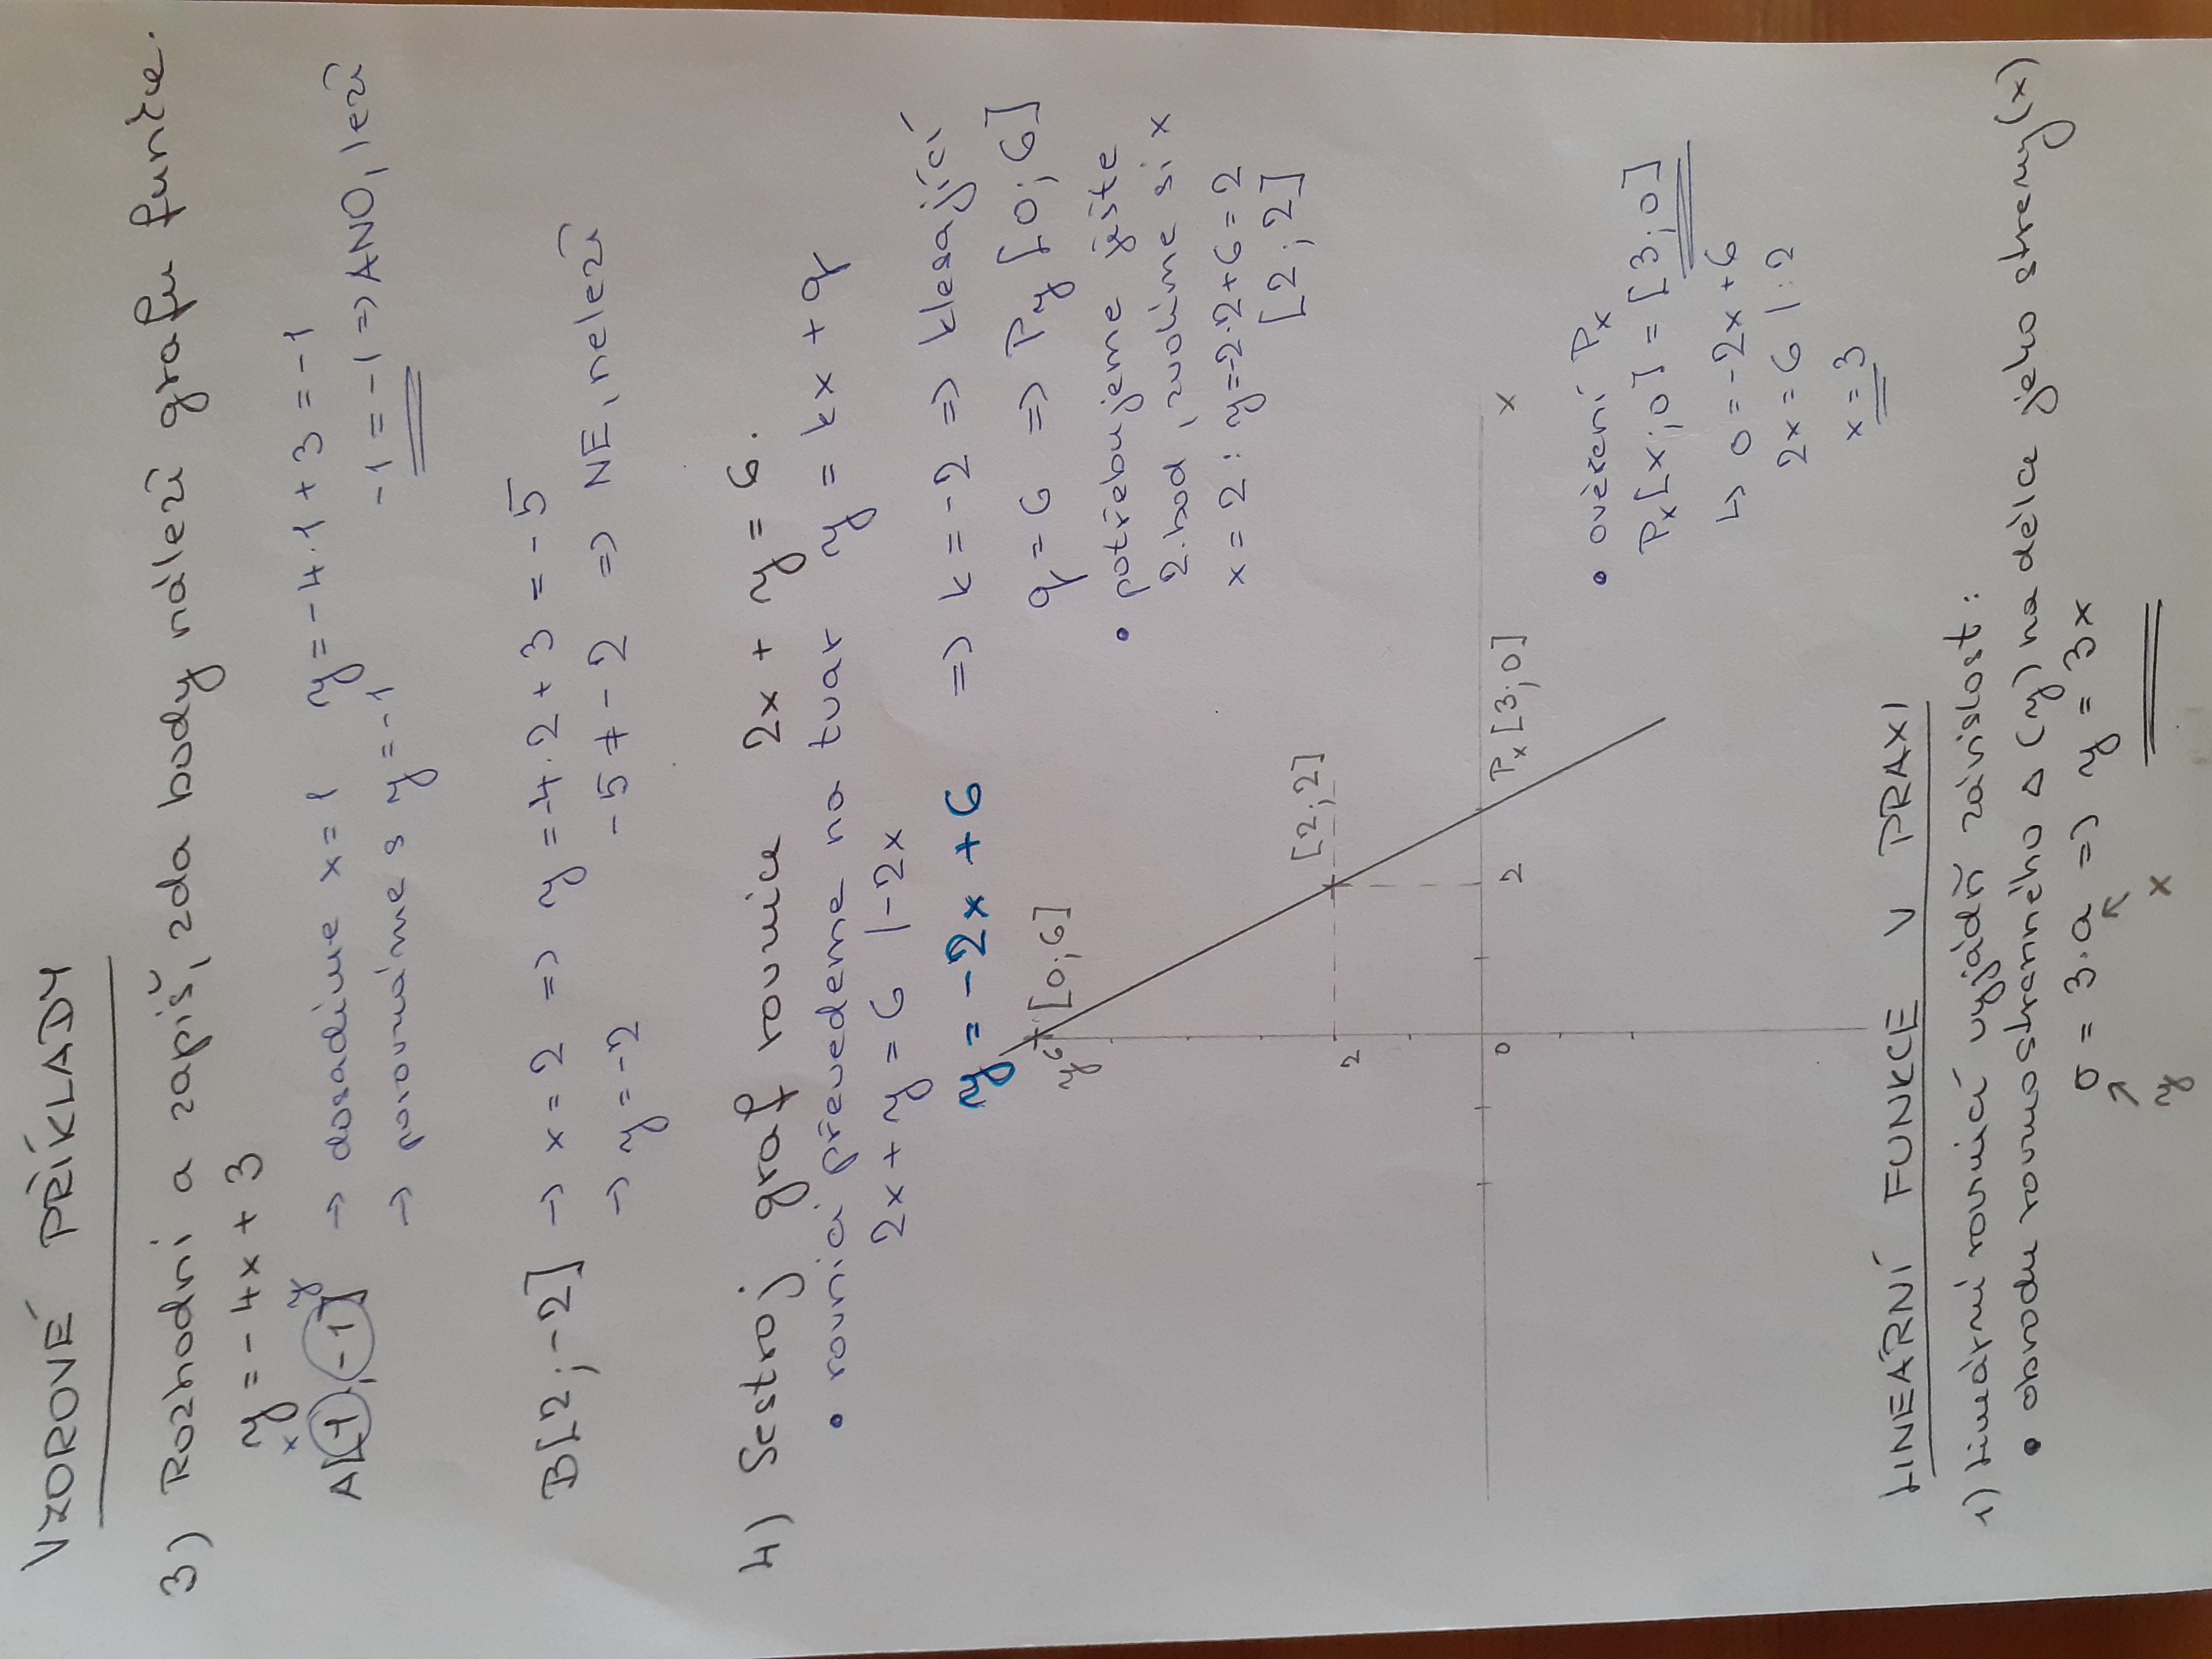 VZOROVÉ PŘÍKLADY
3) Rozhodni a zapiš, zda body náleží grafu funkce.
y = -4x + 3
x y
A[1;-1] → dosadíme x=1 y = -4.1+3 = -1
→ porovnáme s y=-1 -1 = -1 => ANO, leží
B[2;-2] → x=2 => y=-4.2+3 = -5
→ y=-2 -5 ≠ -2 => NE, neleží
4) Sestroj graf rovnice 2x + y = 6.
• rovnici převedeme na tvar y = kx + q
2x + y = 6 |-2x
y = -2x + 6 => k = -2 => klesající
q = 6 => Py [0;6]
• potřebujeme ještě
2. bod, zvolíme si x
x = 2: y=-2.2+6=2
[2;2]
y 6 [0;6]
2 [2;2]
0 2 Px[3;0] x
• ověření Px
Px[x;0] = [3;0]
↳ 0 = -2x+6
2x = 6 |:2
x = 3
LINEÁRNÍ FUNKCE V PRAXI
1) Lineární rovnicí vyjádři závislost:
• obvodu rovnostranného △ (y) na délce jeho strany (x)
o = 3.a => y = 3x
y x